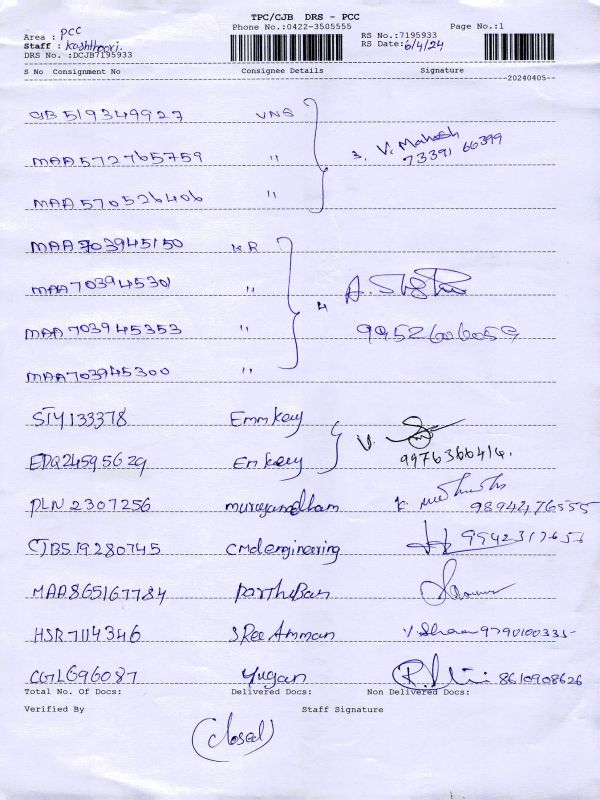 TPC/CJB DRS - PCC
Phone No.:0422-3505555
Page No.:1
Area : PCC
RS No.:7195933
Staff : Kashthoori.
RS Date:6/4/24
DRS No. :DCJB7195933
S No Consignment No Consignee Details Signature
20240405
CJB519349927 VNS
MAA572765759 "
3, V. Mahesh
73391 66399
MAA570526406 "
MAA703945150 KR
MAA703945301 "
4 A.
MAA703945353 " 9952606059
MAA703945300 "
STY133378 Emm Key
V.
EDQ24595629 Em Key 9976366414.
PLN2307256 murugandham K. 9894276555
CJB519280745 cmd engineering
MAA865167784 Parthiban
HSR7114346 SRee Amman 9790100335
CGL696087 Yugan 8610908626
Total No. Of Docs: Delivered Docs: Non Delivered Docs:
Verified By Staff Signature
(closed)